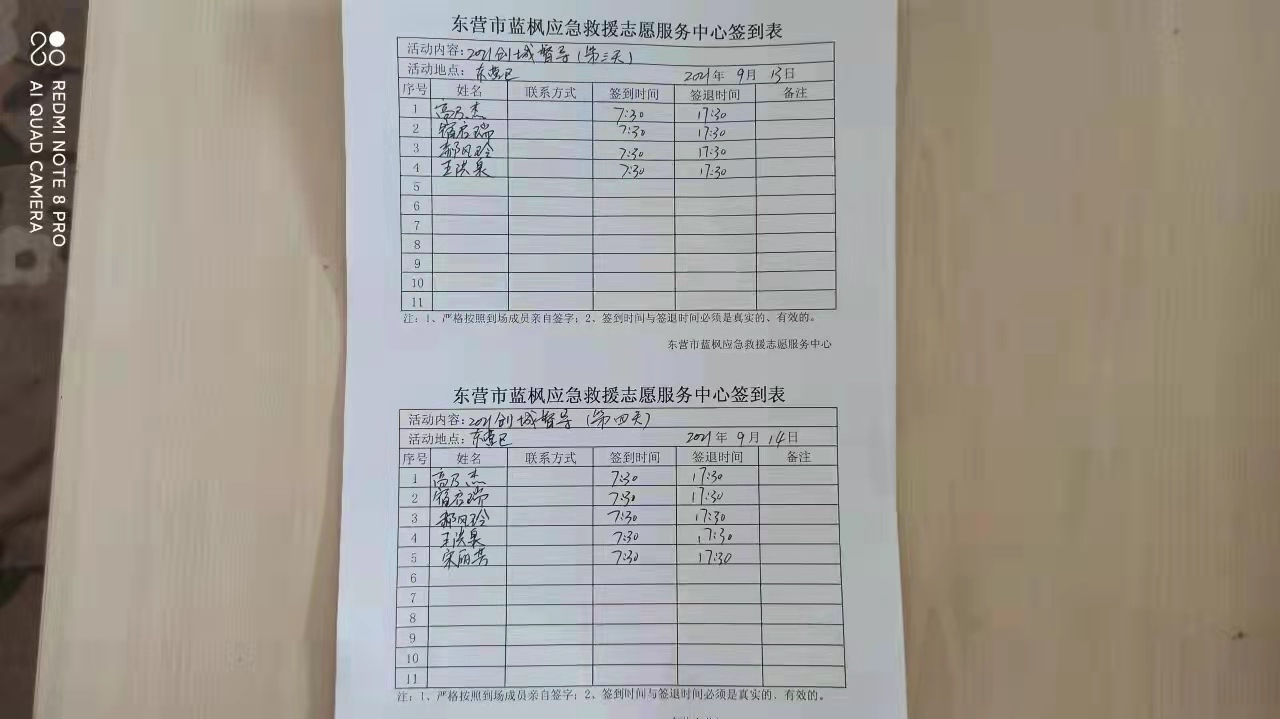 REDMI NOTE 8 PRO
AI QUAD CAMERA
东营市蓝枫应急救援志愿服务中心签到表
活动内容: 2021创城督导(第三天)
活动地点: 东营区 2021年 9月 13日
序号 姓名 联系方式 签到时间 签退时间 备注
1 高乃杰 7:30 17:30
2 宿友瑞 7:30 17:30
3 郝风玲 7:30 17:30
4 王洪泉 7:30 17:30
5
6
7
8
9
10
11
注: 1、严格按照到场成员亲自签字; 2、签到时间与签退时间必须是真实的、有效的。
东营市蓝枫应急救援志愿服务中心
东营市蓝枫应急救援志愿服务中心签到表
活动内容: 2021创城督导(第四天)
活动地点: 东营区 2021年 9月 14日
序号 姓名 联系方式 签到时间 签退时间 备注
1 高乃杰 7:30 17:30
2 宿友瑞 7:30 17:30
3 郝风玲 7:30 17:30
4 王洪泉 7:30 17:30
5 宋丽英 7:30 17:30
6
7
8
9
10
11
注: 1、严格按照到场成员亲自签字; 2、签到时间与签退时间必须是真实的、有效的。